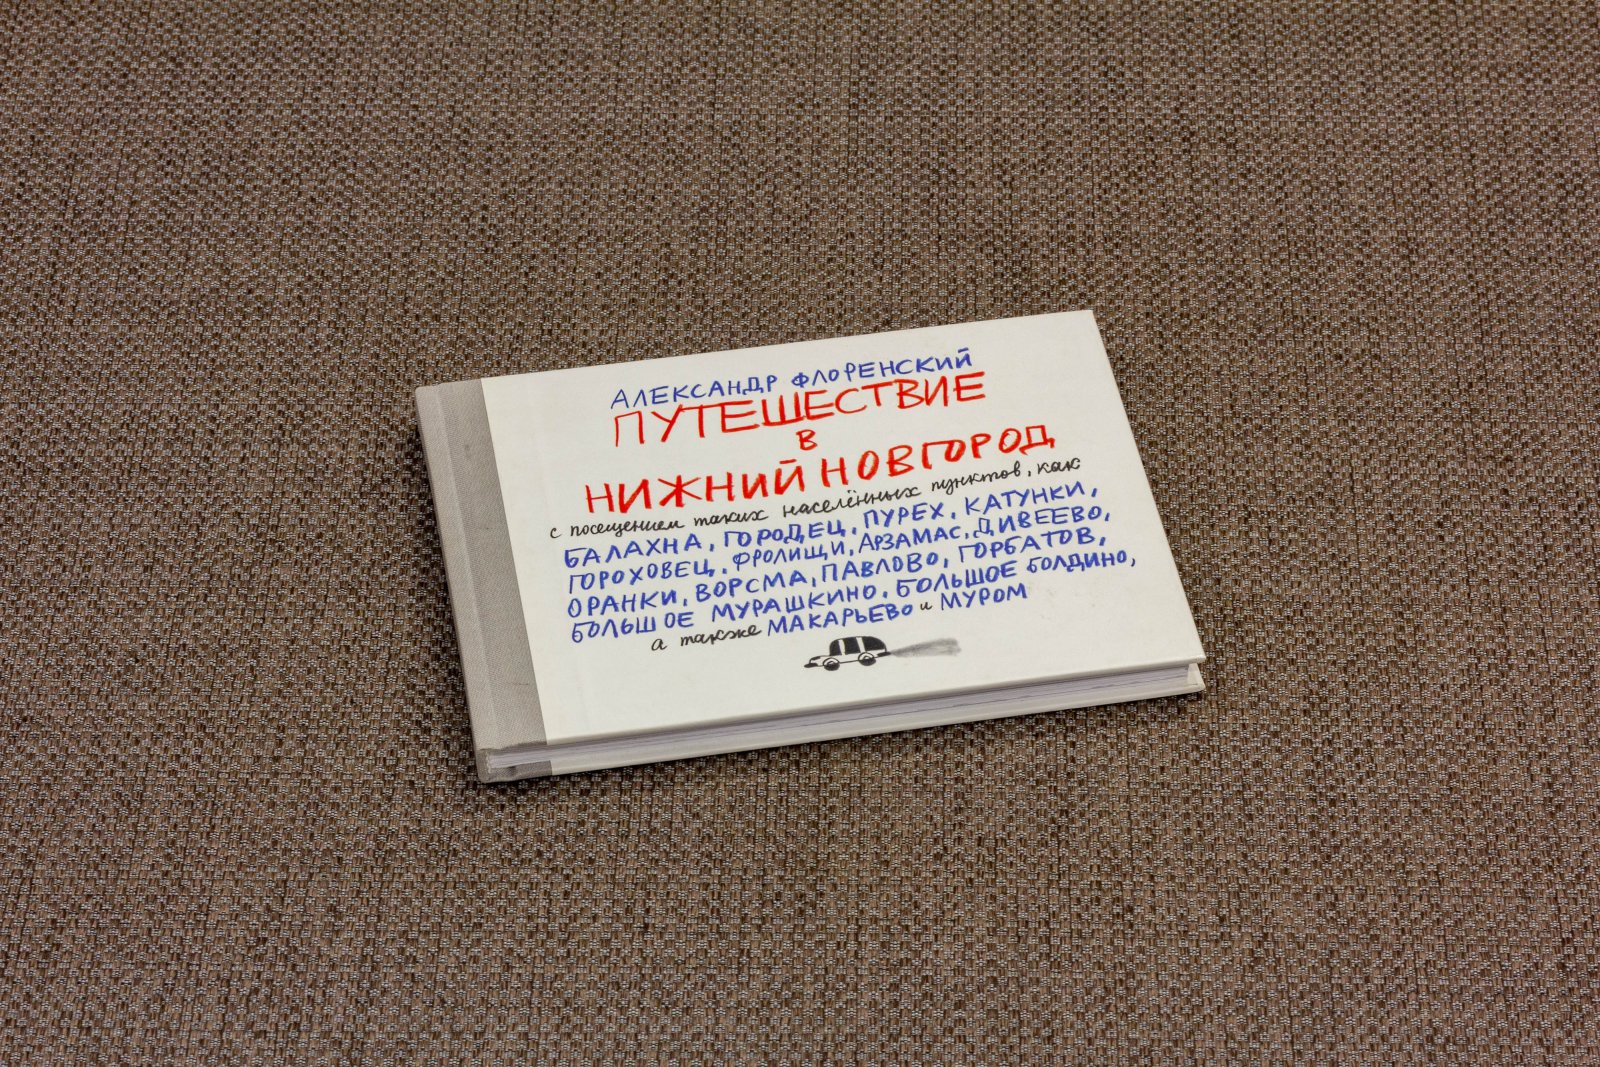 АЛЕКСАНДР ФЛОРЕНСКИЙ
ПУТЕШЕСТВИЕ
В
НИЖНИЙ НОВГОРОД
с посещением таких населённых пунктов, как
БАЛАХНА, ГОРОДЕЦ, ПУРЕХ, КАТУНКИ,
ГОРОХОВЕЦ, ФРОЛИЩИ, АРЗАМАС, ДИВЕЕВО,
ОРАНКИ, ВОРСМА, ПАВЛОВО, ГОРБАТОВ,
БОЛЬШОЕ МУРАШКИНО, БОЛЬШОЕ БОЛДИНО,
а также МАКАРЬЕВО и МУРОМ